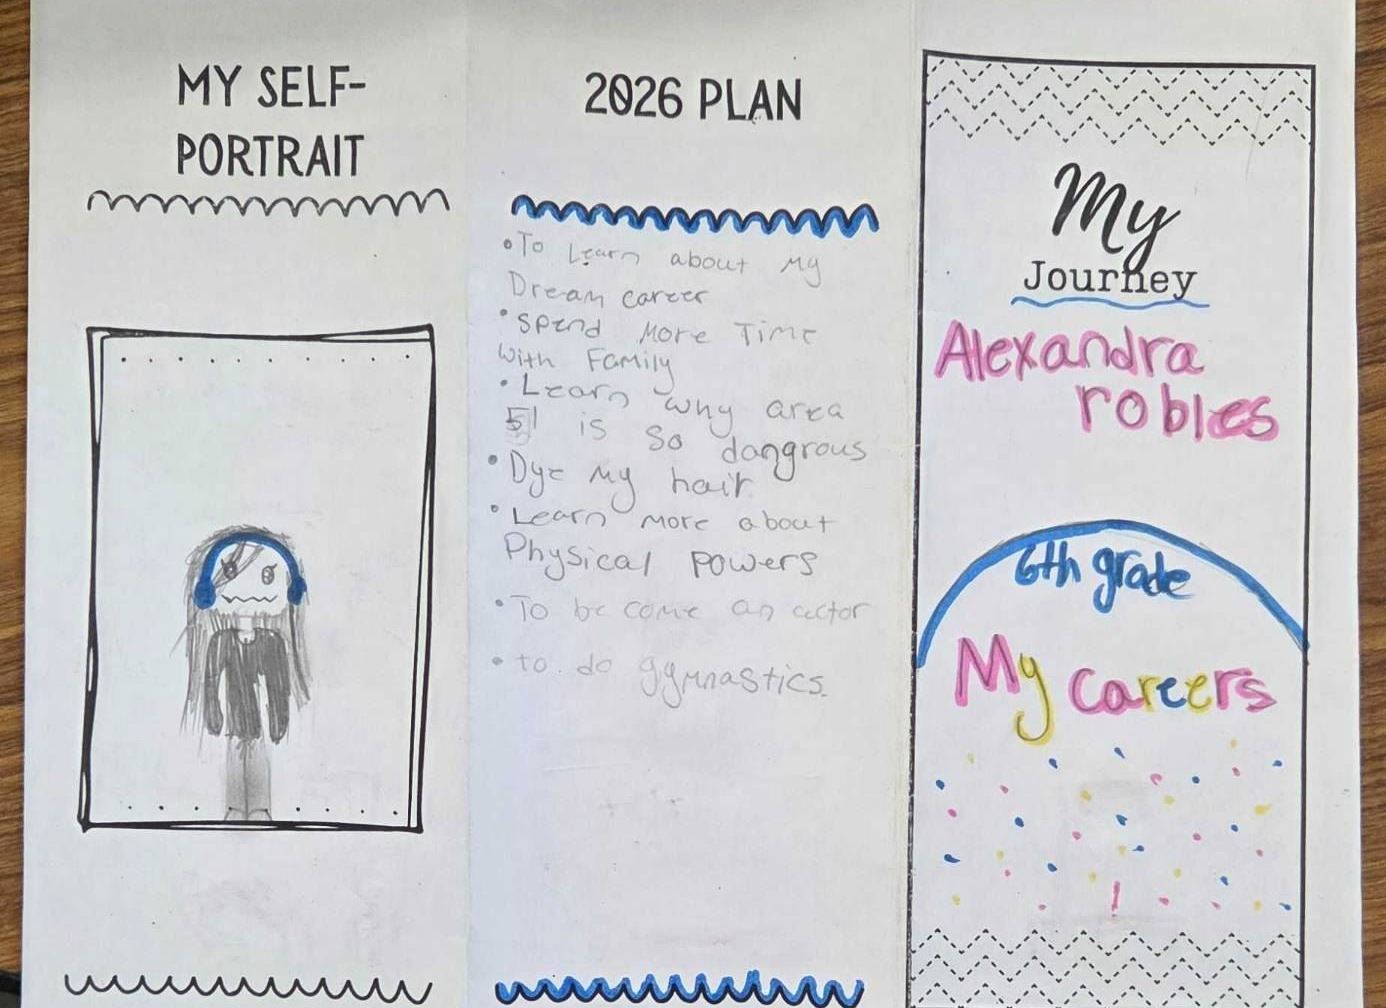 MY SELF-
PORTRAIT
2026 PLAN
•To Learn about My
Dream career
•Spend More Time
With Family
•Learn why area
51 is so dangrous
•Dye my hair
•Learn more about
Physical Powers
•To be come an actor
•to do gymnastics.
My
Journey
Alexandra
robles
6th grade
My careers